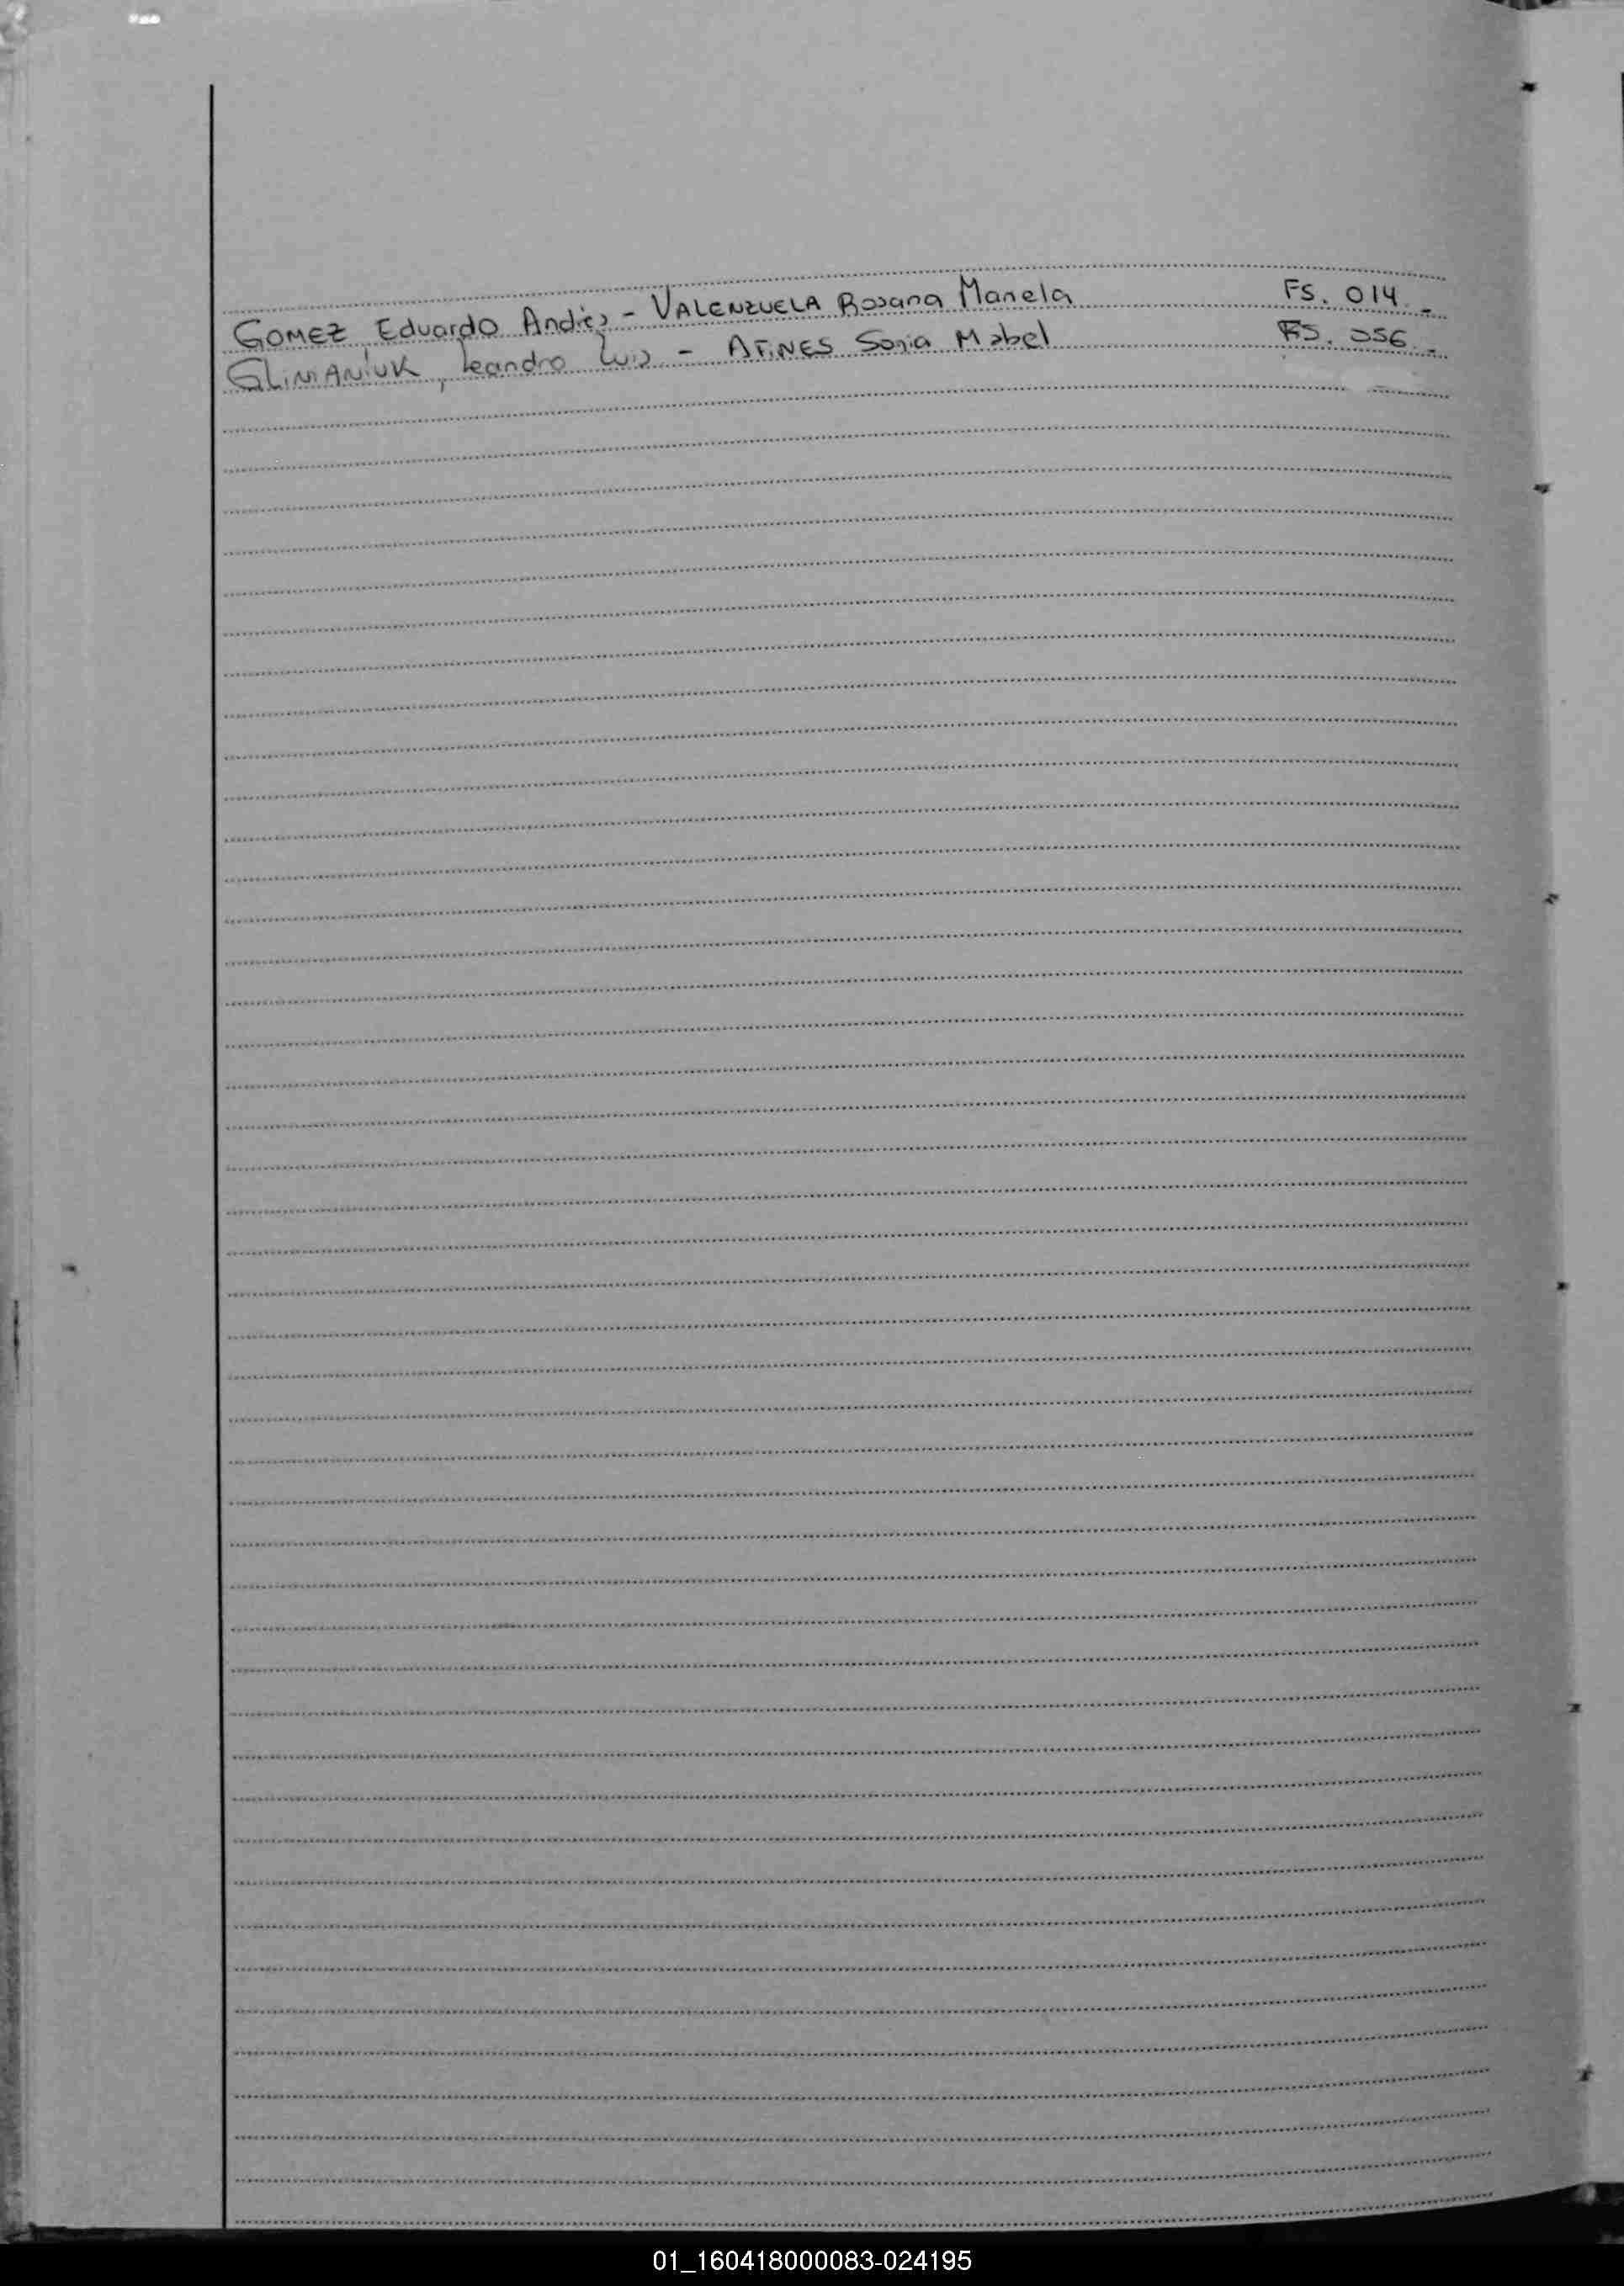 GOMEZ Eduardo Andrés - VALENZUELA Rosana Mariela FS. 014.-
GLINIANIUK, Leandro Luis - AFINES Sonia Mabel FS. 056.-
01_160418000083-024195